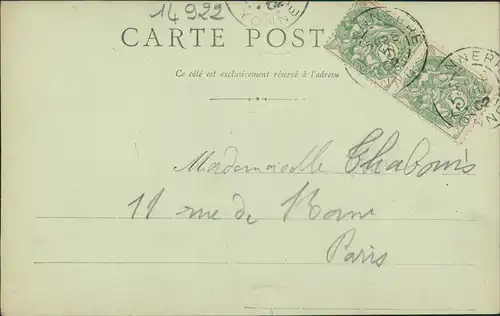 14922
CARTE POST
Ce côté est exclusivement réservé à l'adresse
Mademoiselle Chabonis
11 rue de Rome
Paris